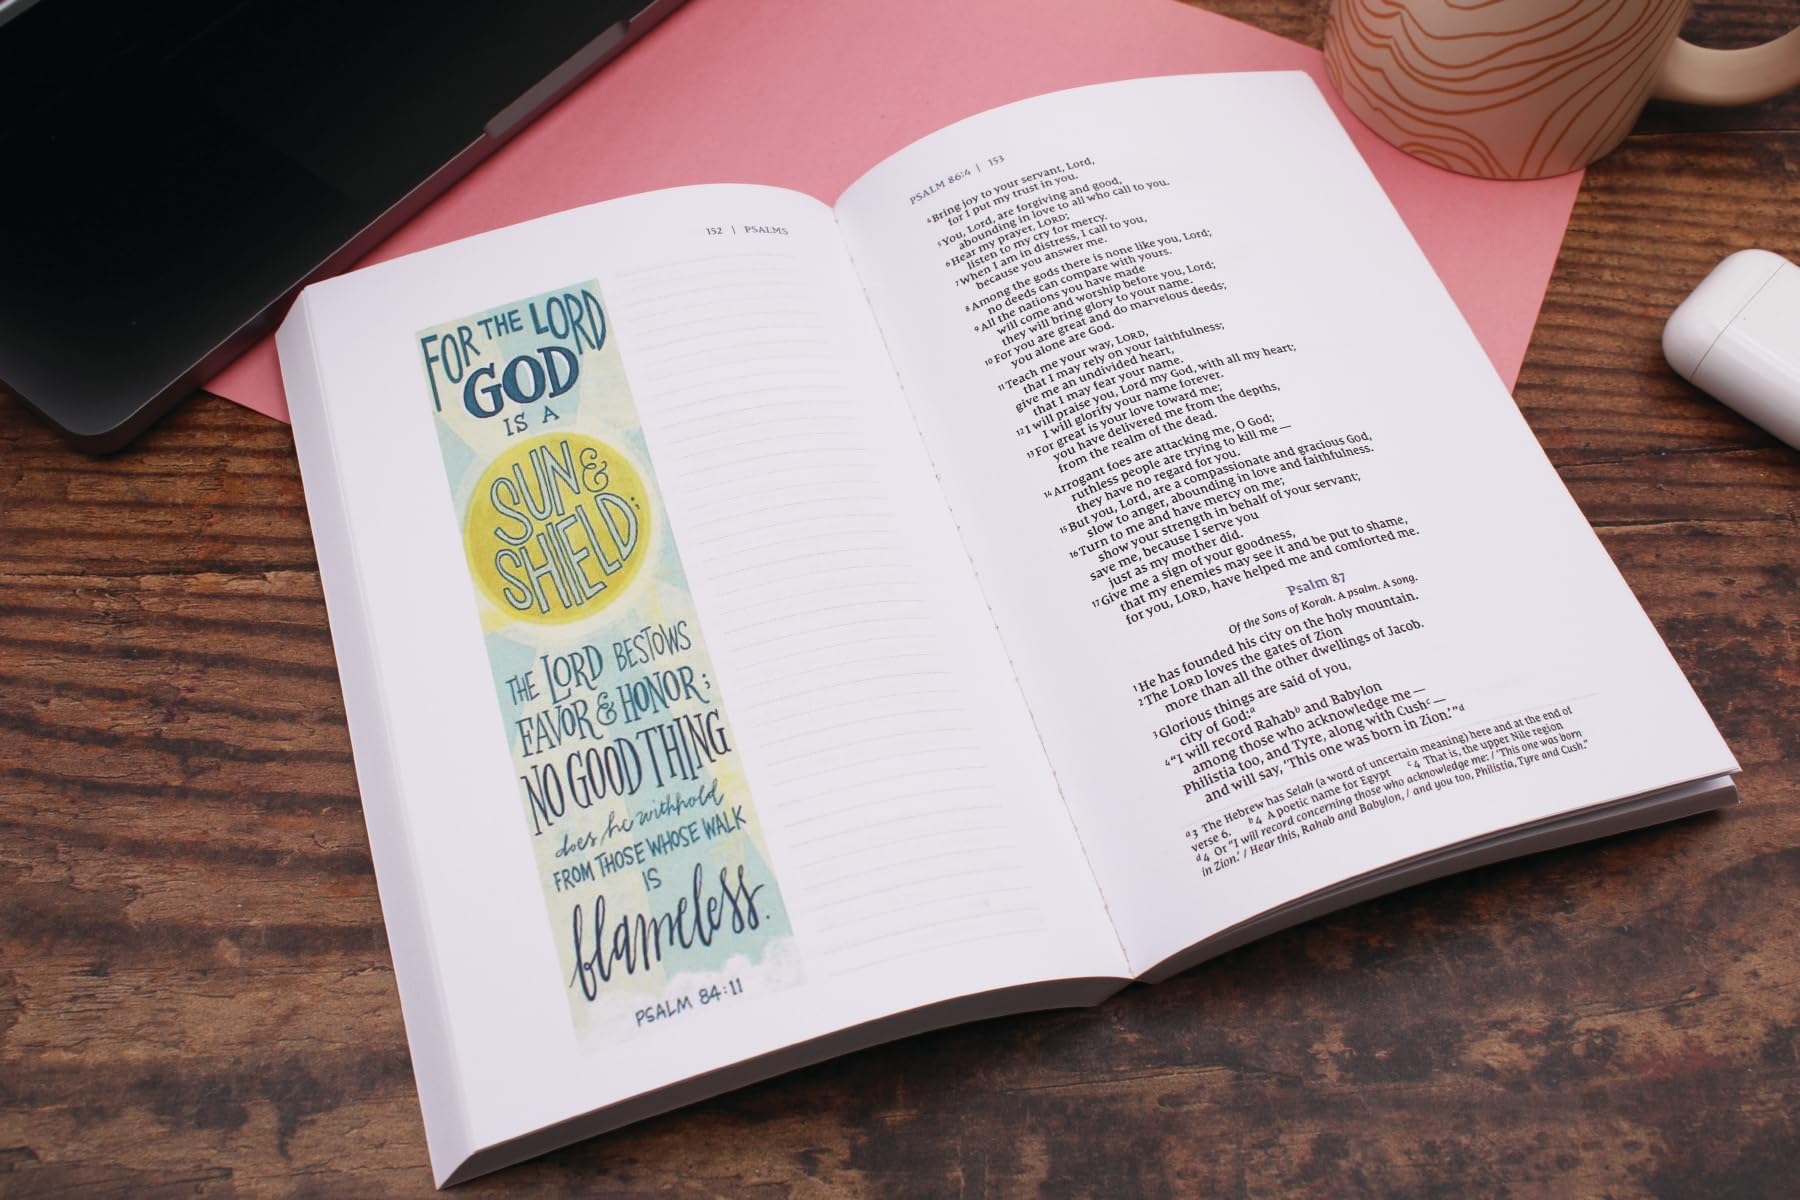 152 | PSALMS
FOR THE LORD
GOD
IS A
SUN &
SHIELD;
THE LORD BESTOWS
FAVOR & HONOR;
NO GOOD THING
does he withhold
FROM THOSE WHOSE WALK
IS
blameless.
PSALM 84:11
PSALM 86:4 | 153
4 Bring joy to your servant, Lord,
for I put my trust in you.
5 You, Lord, are forgiving and good,
abounding in love to all who call to you.
6 Hear my prayer, LORD;
listen to my cry for mercy.
7 When I am in distress, I call to you,
because you answer me.
8 Among the gods there is none like you, Lord;
no deeds can compare with yours.
9 All the nations you have made
will come and worship before you, Lord;
they will bring glory to your name.
10 For you are great and do marvelous deeds;
you alone are God.
11 Teach me your way, LORD,
that I may rely on your faithfulness;
give me an undivided heart,
that I may fear your name.
12 I will praise you, Lord my God, with all my heart;
I will glorify your name forever.
13 For great is your love toward me;
you have delivered me from the depths,
from the realm of the dead.
14 Arrogant foes are attacking me, O God;
ruthless people are trying to kill me—
they have no regard for you.
15 But you, Lord, are a compassionate and gracious God,
slow to anger, abounding in love and faithfulness.
16 Turn to me and have mercy on me;
show your strength in behalf of your servant;
save me, because I serve you
just as my mother did.
17 Give me a sign of your goodness,
that my enemies may see it and be put to shame,
for you, LORD, have helped me and comforted me.
Psalm 87
Of the Sons of Korah. A psalm. A song.
1 He has founded his city on the holy mountain.
2 The LORD loves the gates of Zion
more than all the other dwellings of Jacob.
3 Glorious things are said of you,
city of God:a
4 “I will record Rahabb and Babylon
among those who acknowledge me—
Philistia too, and Tyre, along with Cushc—
and will say, ‘This one was born in Zion.’”d
a3 The Hebrew has Selah (a word of uncertain meaning) here and at the end of
verse 6. b4 A poetic name for Egypt c4 That is, the upper Nile region
d4 Or “I will record concerning those who acknowledge me: / ‘This one was born
in Zion.’ / Hear this, Rahab and Babylon, / and you too, Philistia, Tyre and Cush.”